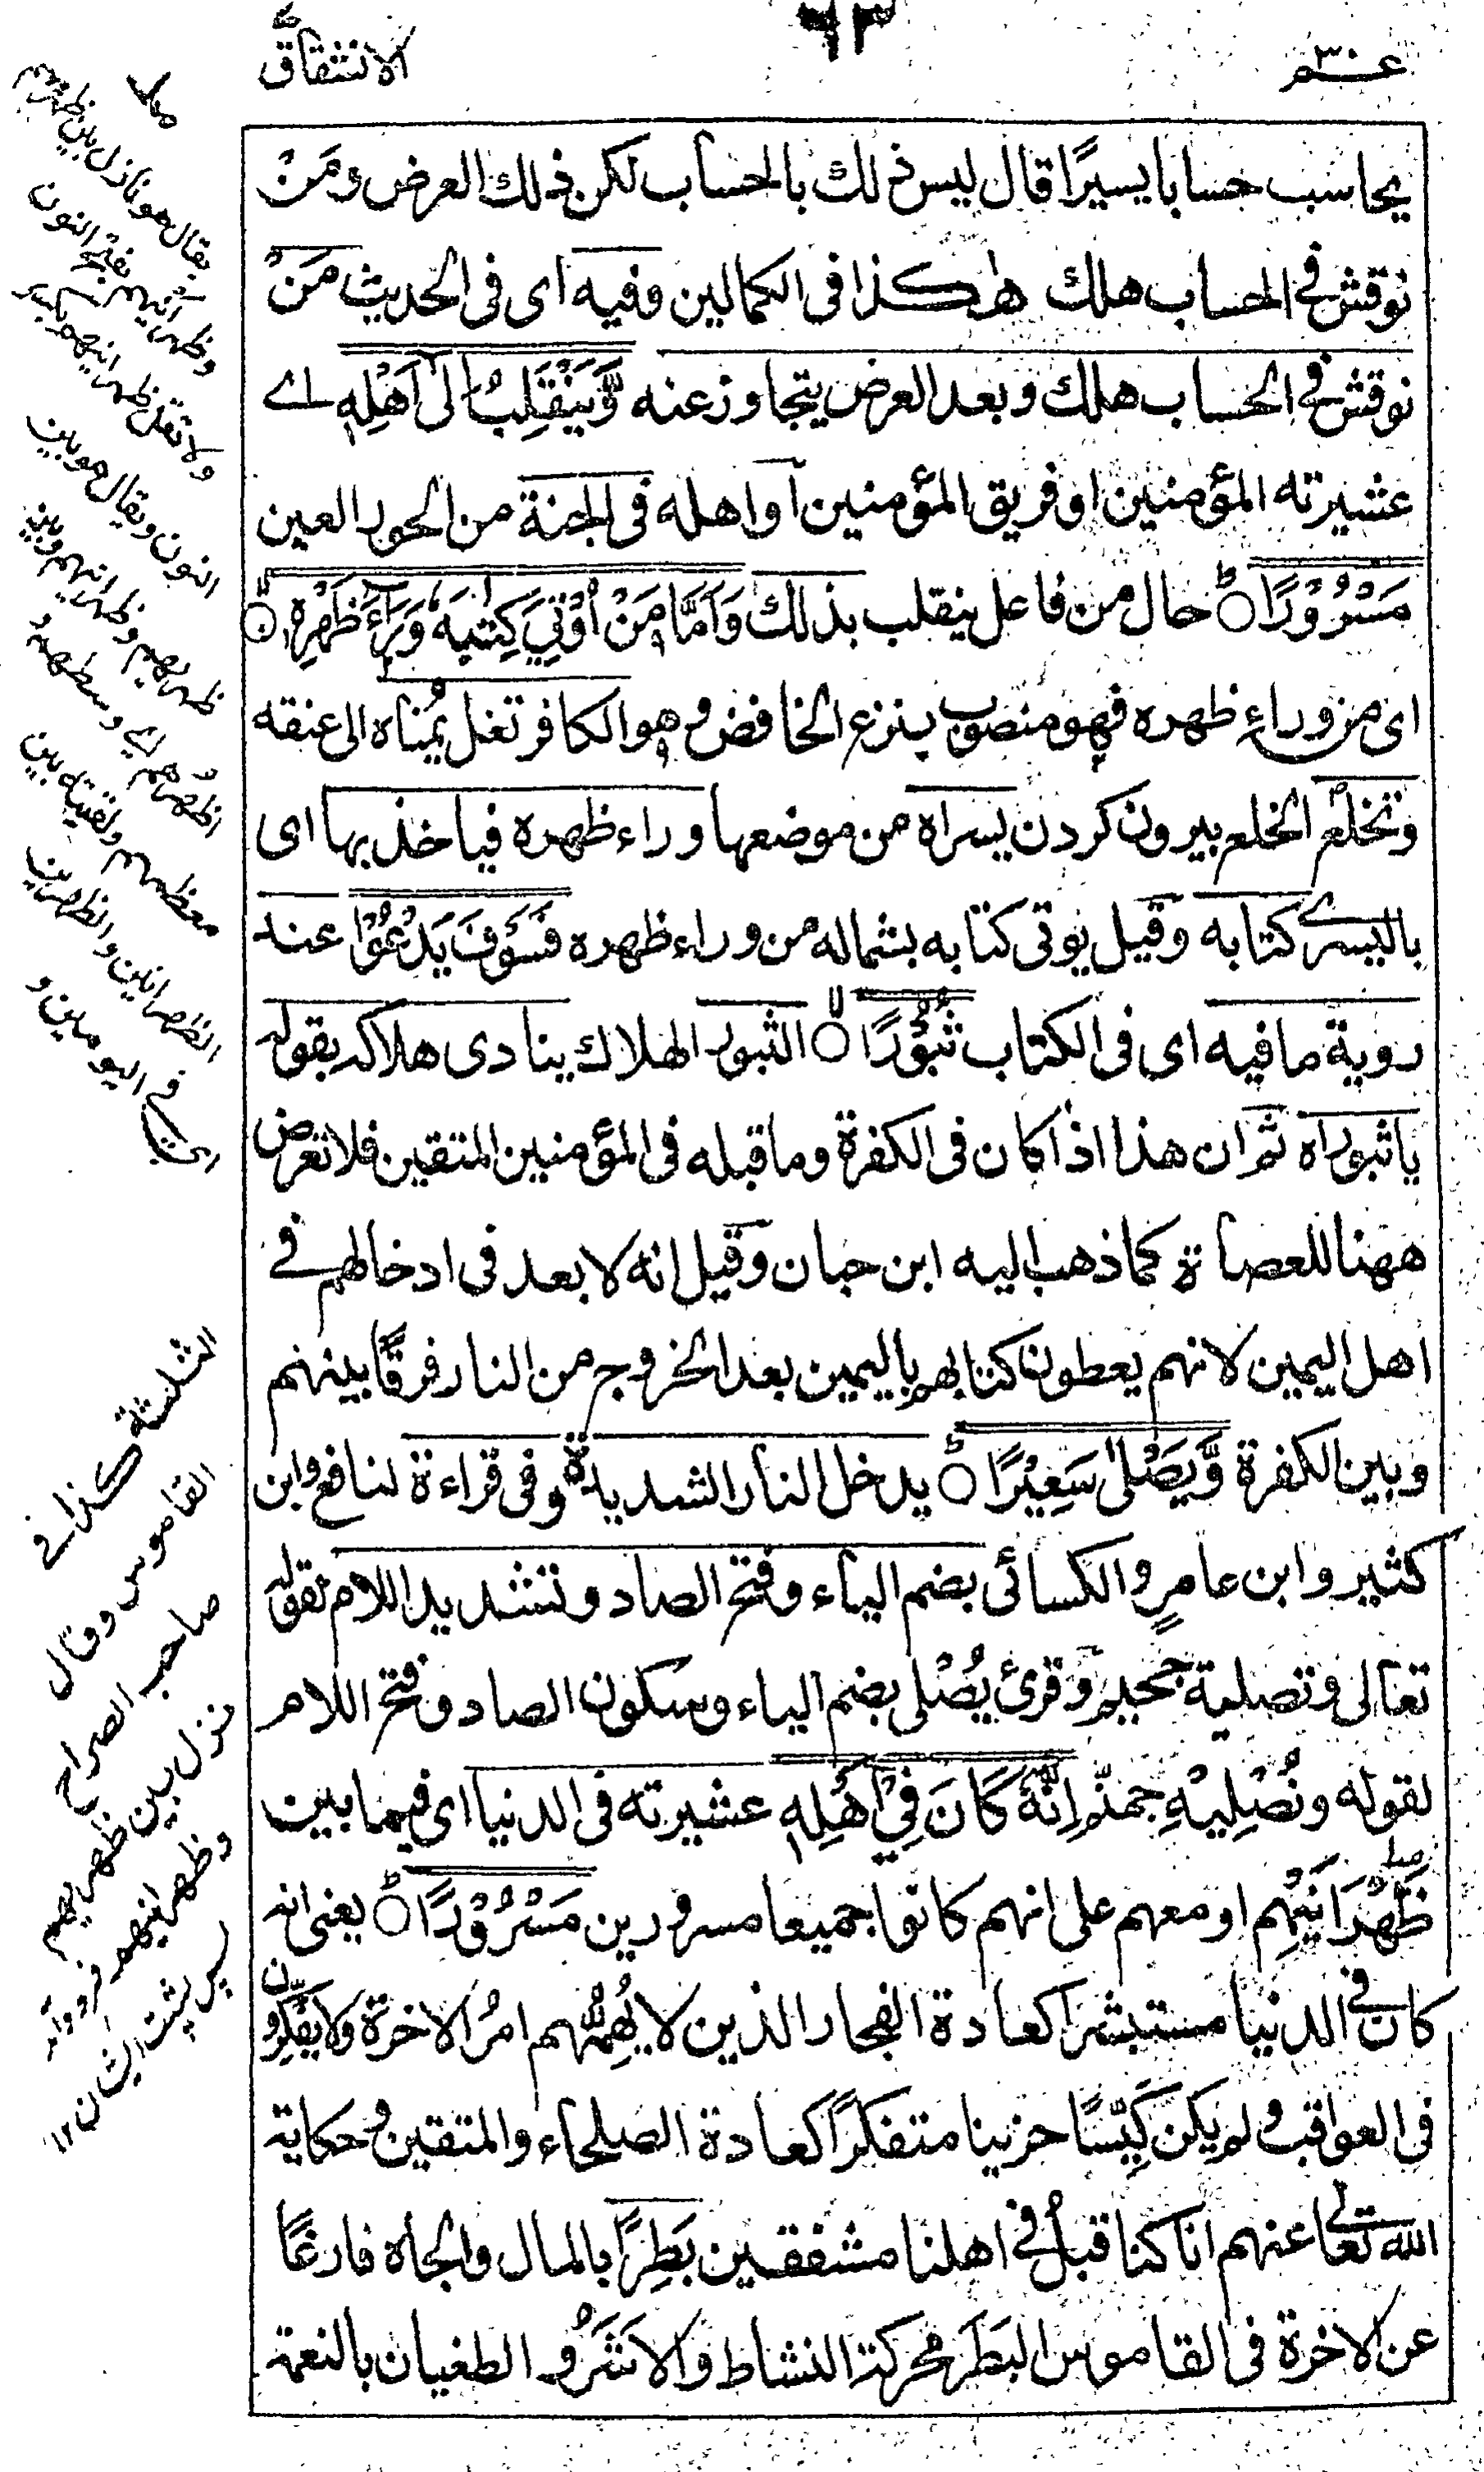 عـــم ٣٠
٦٣
الانشقاق
يحاسب حسابا يسيرًا قال ليس ذلك بالحساب لكن ذلك العرض ومَنْ
نوقش فے الحساب هلك هٰكذا فی الكمالين وفيه ای فی الحديث مَنْ
نوقش فے الحساب هلك وبعد العرض يتجاوز عنه وَّيَنْقَلِبُ اِلٰٓى اَهْلِهٖ اے
عشيرته المؤمنين او فريق المؤمنين او اهله فی الجنة من الحور العين
مَسْرُوْرًا حال من فاعل ينقلب بذلك وَاَمَّا مَنْ اُوْتِيَ كِتٰبَهٗ وَرَآءَ ظَهْرِهٖ
ای من وراء ظهره فهو منصوب بنزع الخافض وهو الكافر تغل يُمناه الى عنقه
وتخلع الخلع بيرون كردن يسراه من موضعها وراء ظهره فياخذ بها ای
باليسرے كتابه وقيل يوتى كتابه بشماله من وراء ظهره فَسَوْفَ يَدْعُوْا عند
روية ما فيه ای فی الكتاب ثُبُوْرًا الثبور الهلاك ينادى هلاكه بقوله
يا ثبوراه ثم ان هذا اذا كان فی الكفرة وما قبله فی المؤمنين المتقين فلا تعرض
ههنا للعصاة كما ذهب اليه ابن حبان وقيل انه لا بعد فی ادخالهم فے
اهل اليمين لانهم يعطون كتابهم باليمين بعد الخروج من النار فرقًا بينهم
وبين الكفرة وَّيَصْلٰى سَعِيْرًا يدخل النار الشديدة وفی قراءة لنافع وابن
كثير وابن عامرٍ والكسائی بضم الياء وفتح الصاد وتشديد اللام لقوله
تعالى وتصلية جحيم وقرئ يُصْلٰى بضم الياء وسكون الصاد وفتح اللام
لقوله ونُصْلِيْهِ جهنّم اِنَّهٗ كَانَ فِيْٓ اَهْلِهٖ عشيرته فی الدنيا ای فيما بين
ظَهْرَانَيْهِم او معهم على انهم كانوا جميعا مسرورين مَسْرُوْرًا يعنى انه
كان فے الدنيا مستبشرا كعادة الفجار الذين لا يُهِمُّهم امرُ الاخرة ولا يفكرون
فی العواقب ولم يكن كَيِّسًا حزينا متفكرًا كعادة الصلحاء والمتقين وحكاية
الله تعالى عنهم انا كنا قبلُ فے اهلنا مشفقين بَطِرًا بالمال والجاه فارغًا
عن الاخرة فی القاموس البَطَر محركة النشاط والاشَر والطغيان بالنعمة
يقال هو نازل بين ظهريهم
وظهرانيهم بفتح النون
ولا تقل ظهرانيهم بكسر
النون ويقال هو بين
ظهريهم وظهرانيهم وبين
اظهُرهم اے وسطهم و
معظمهم ولقيته بين
الظهرانين والظهرين
اے فے اليومين و
الثلثة كذا فے
القاموس وقال
صاحب الصراح
نزل بين ظهريهم
وظهرانيهم فرود آمد